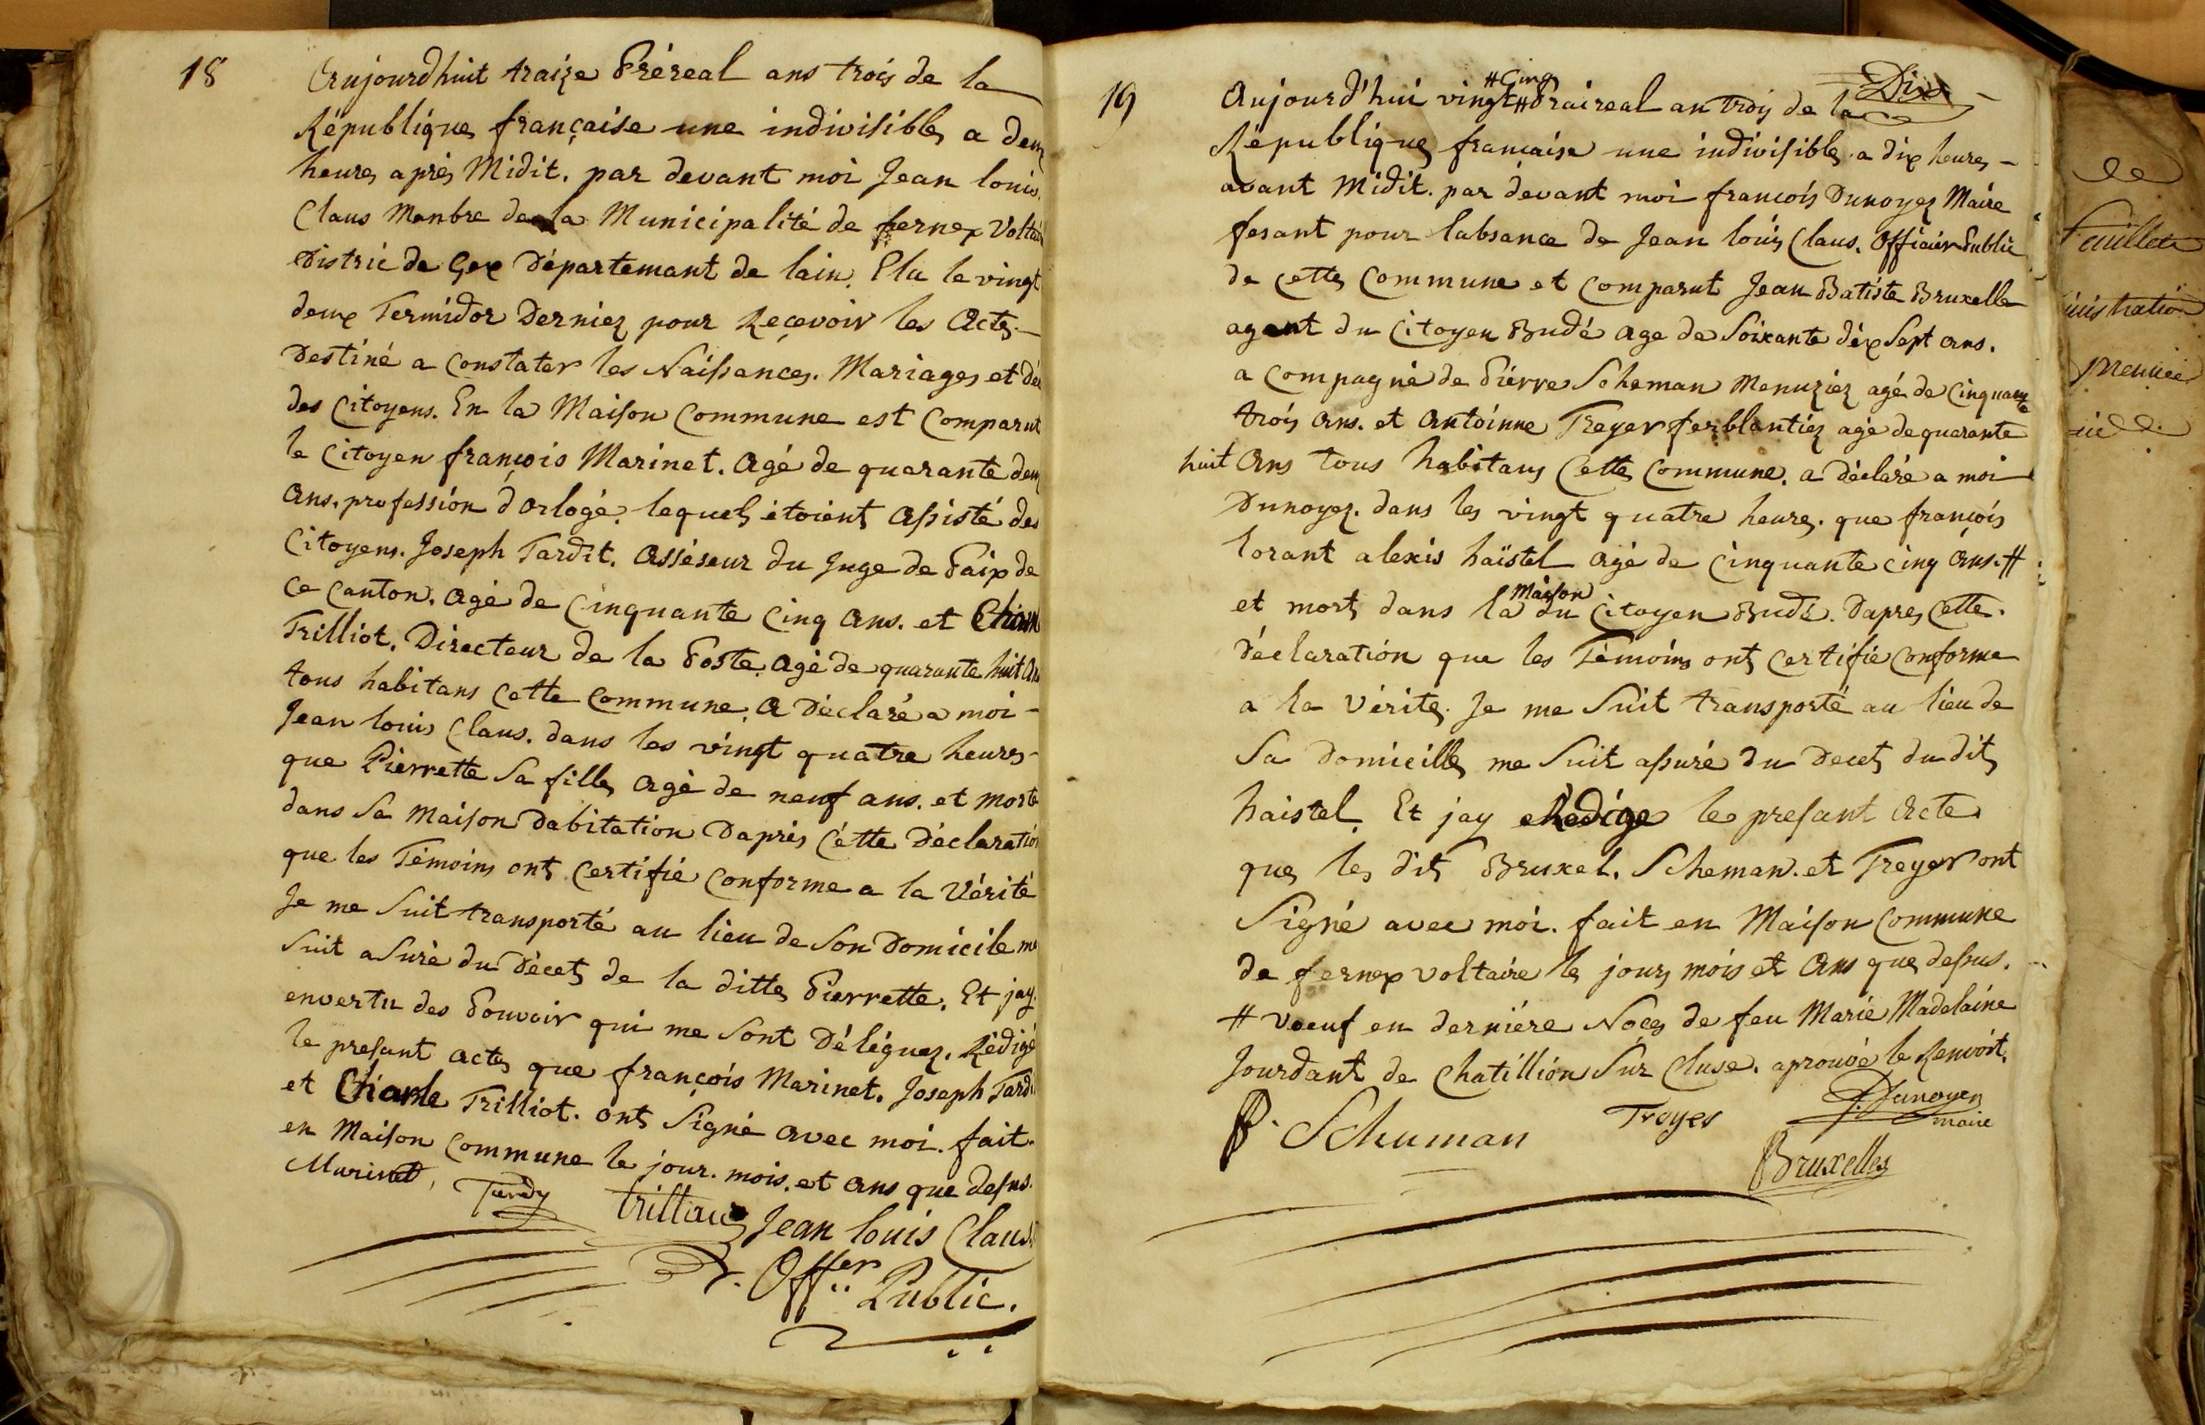 18
Aujourdhuit traize Préreal ans trois de la
République française une indivisible a deux
heures après Midit. par devant moi Jean louis
Claus Manbre de la Municipalité de fernex Voltai
District de Gex Département de lain. Elu le vingt
deux Termidor Dernier pour Reçevoir les Actes
Destiné a Constater les Naissances. Mariages et déc
des Citoyens. En la Maison Commune est Comparut
le Citoyen françois Marinet. agé de quarante deux
ans. profession d'orlogé. lequel étoient assisté des
Citoyens. Joseph Tardit. asséseur du Juge de Paix de
Ce Canton. agé de Cinquante Cinq ans. et Charle
Trilliot. Directeur de la Poste. agé de quarante huit ans
tous habitans Cette Commune. a Déclaré a moi
Jean louis Claus. dans les vingt quatre heures
que Pierrette Sa fille agé de neuf ans. et morte
dans Sa Maison Dabitation Daprès Cétte Déclaration
que les Témoins ont Certifié Conforme a la Vérité
Je me Suit transporté au lieu de Son Domicile me
Suit asuré du Décet de la ditte Pierrette. Et jay
envertu des Pouvoir qui me Sont Déléguez. Rédigé
le presant acte que françois Marinet. Joseph Tardi
et Charle Trilliot. ont Signé avec moi. fait
en Maison Commune le jour. mois. et ans que desus.
Marinet
Tardy
trilliau
Jean louis Claus
Off.er Public.
Dix
19
Aujourd'hui vingt # Praireal an trois de la
#Cinq
République française une indivisible a dix heures
avant Midit. par devant moi françois Dunoyer Maire
fesant pour labsance de Jean louis Claus. Officier Public
de Cette Commune et Comparut Jean Batiste Bruxelle
agent du Citoyen Budé age de Soixante déx Sept ans.
a Compagné de Piérre Scheman Menuziez agé de Cinquante
trois ans. et Antoinne Treyer ferblantiez agé de quarante
huit ans tous habitans Cette Commune. a déclaré a moi
Dunoyez. dans les vingt quatre heures. que françois
lorant alexis haïstel agé de Cinquante Cinq ans. #
et mort dans la du Citoyen Budé. Dapres Cette
Maison
déclaration que les Témoins ont Certifié Conforme
a la Vérité. Je me Suit transporté au lieu de
Sa Domicille me Suit assuré du Decet du dit
haistel. Et jay Redigé le presant Acte
que les dit Bruxel. Scheman. et Treyer ont
Signé avec moi. fait en Maison Commune
de fernex voltaire le jour mois et Ans que dessus.
# voeuf en derniére Noces de feu Marie Madelaine
Jourdant de Chatillion Sur Cluse. aprouvé le Renvoit
P. Schuman
Troyer
Dunoyer
maire
Bruxelles
feuillet